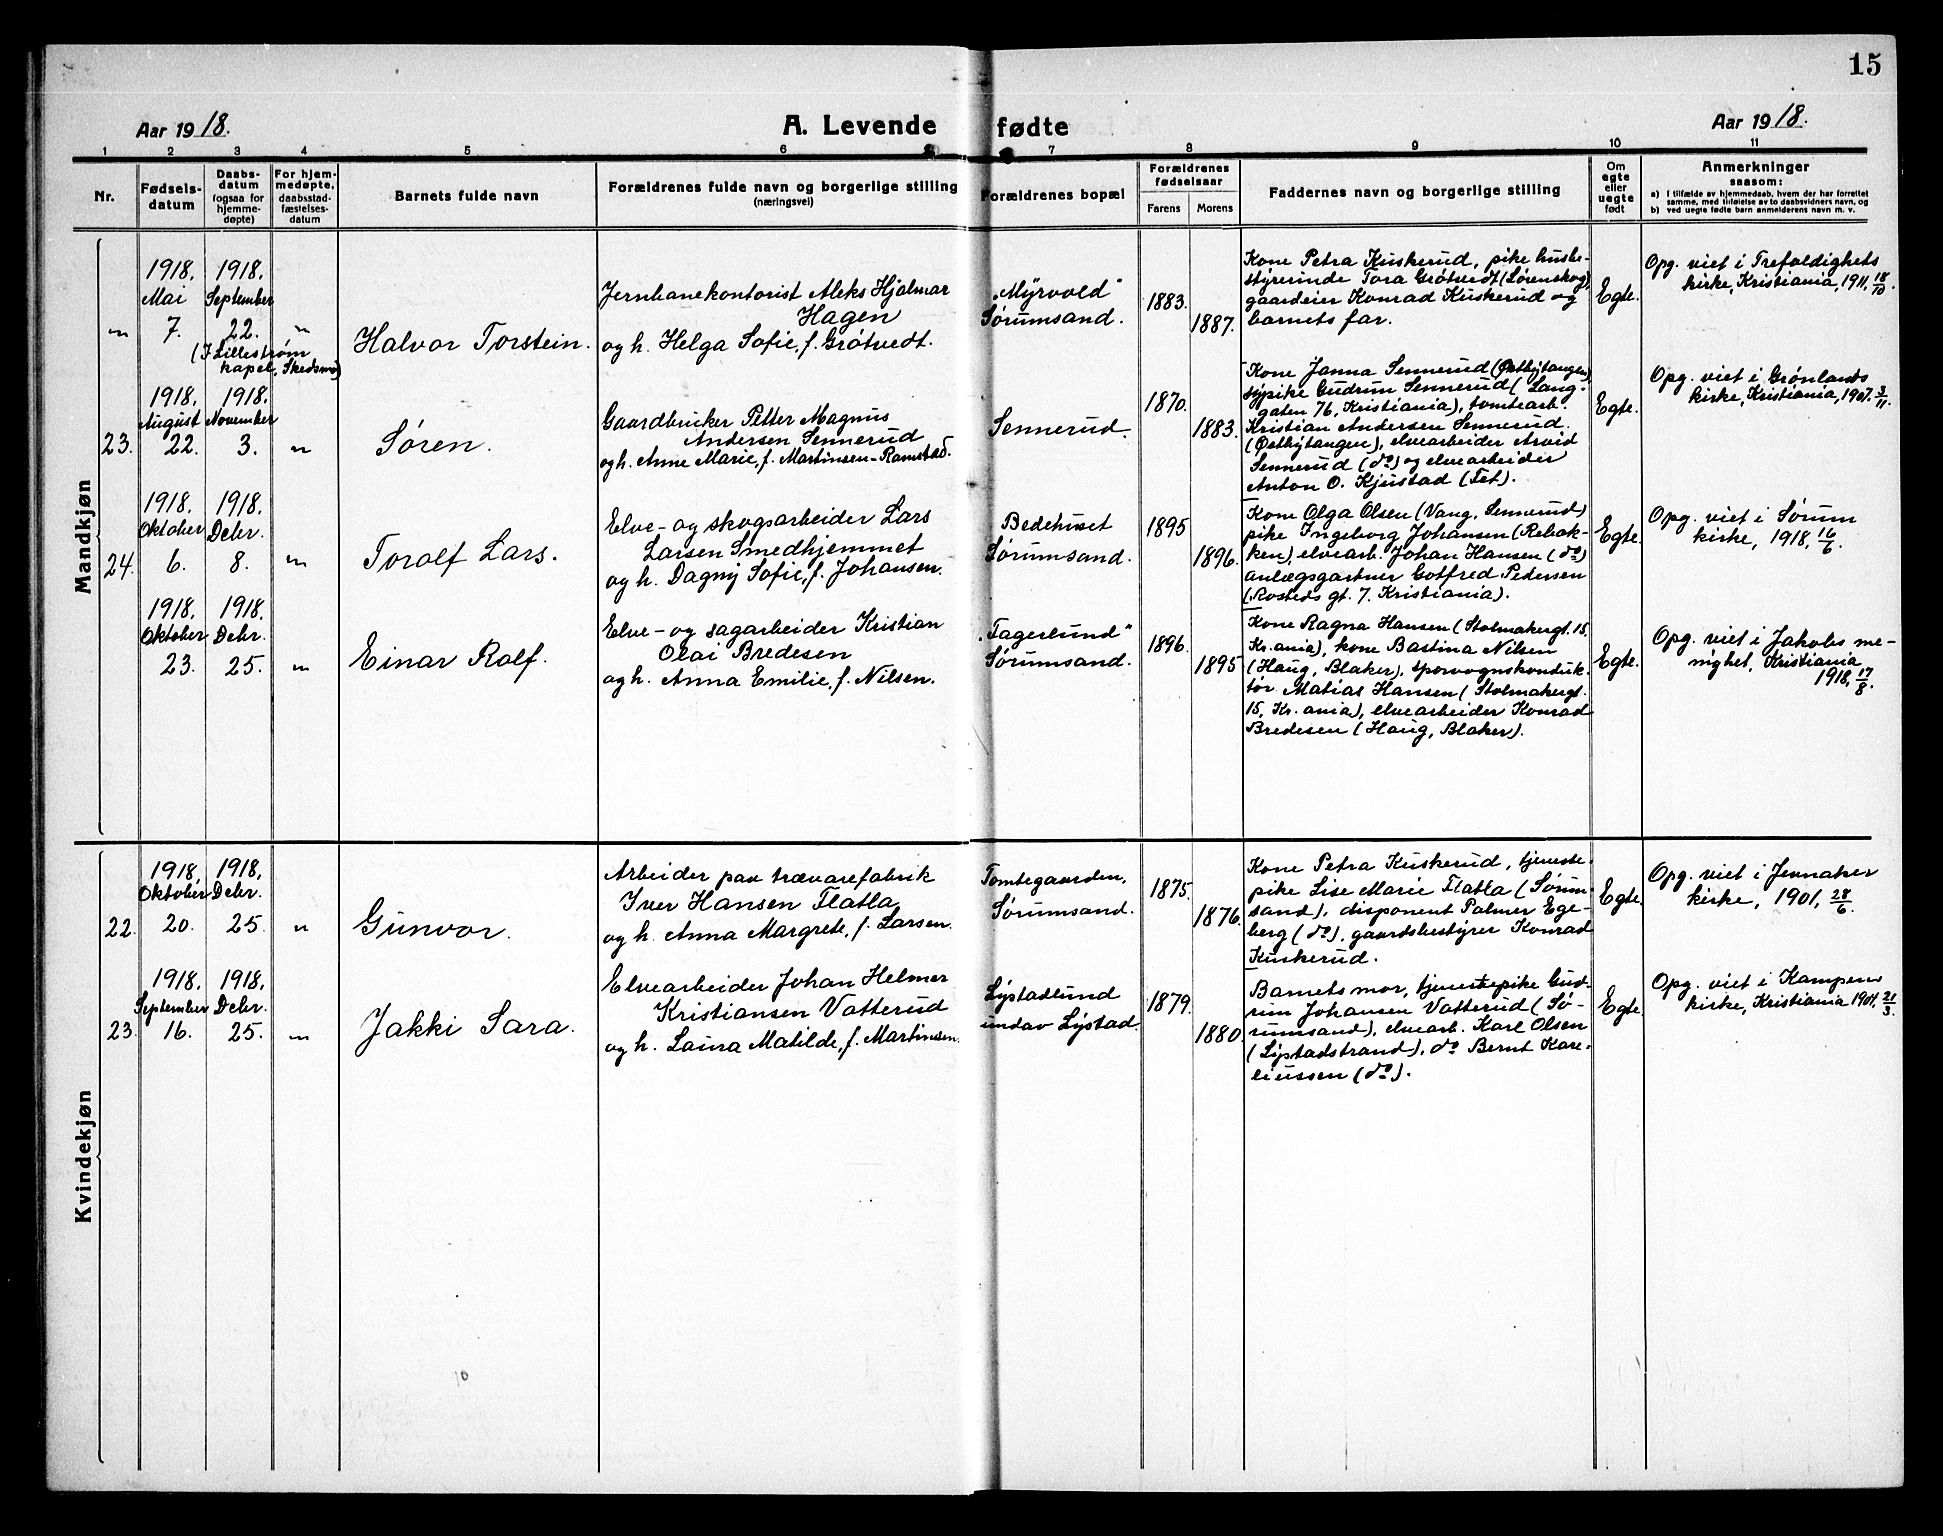 15
Aar 1918.
A. Levende fødte
Aar 1918.
1 2 3 4 5 6 7 8 9 10 11
Nr.
Fødsels-
datum
Daabs-
datum
(ogsaa for
hjemme-
døpte)
For hjem-
medøpte,
daabsstad-
fæstelses-
datum
Barnets fulde navn
Forældrenes fulde navn og borgerlige stilling
(næringsvei)
Forældrenes bopæl
Forældrenes
fødselsaar
Farens Morens
Faddernes navn og borgerlige stilling
Om
egte
eller
uegte
født
Anmerkninger
saasom:
a) i tilfælde av hjemmedaab, hvem der har forrettet
samme, med tilføielse av to daabsvidners navn, og
b) ved uegte fødte barn anmelderens navn m. v.
Mandkjøn
"
1918.
Mai
7.
1918.
September
22.
"
(I Lillestrøm
kapel, Skedsmo)
Halvor Torstein.
Jernbanekontorist Aleks Hjalmar
Hagen
og h. Helga Sofie, f. Grøtvedt.
"Myrvold"
Sørumsand.
1883.
1887.
Kone Petra Kuskerud, pike husbe-
styrerinde Tora Grøtvedt (Lørenskog),
gaardeier Konrad Kuskerud og
barnets far.
Egte.
Opg. viet i Trefoldighets
kirke, Kristiania, 1911, 18/10.
23.
1918.
August
22.
1918.
November
3.
"
Søren.
Gaardbruker Petter Magnus
Andersen Sennerud
og h. Anne Marie, f. Martinsen-Ramstad.
Sennerud.
1870.
1883.
Kone Janna Sennerud (Østbytangen)
sypike Gudrun Sennerud (Lang-
gaten 76, Kristiania), tomtearb.
Kristian Andersen Sennerud
(Østbytangen), elvearbeider Arvid
Sennerud (do) og elvearbeider
Anton O. Kjustad (Fet).
Egte.
Opg. viet i Grønlands
kirke, Kristiania, 1907. 3/11.
24.
1918.
Oktober
6.
1918.
Debr.
8.
"
Toralf Lars.
Elve- og skogsarbeider Lars
Larsen Smedhjemmet
og h. Dagny Sofie, f. Johansen.
Bedehuset
Sørumsand.
1895
1896.
Kone Olga Olsen (Vang, Sennerud)
pike Ingeborg Johansen (Rebak-
ken), elvearb. Johan Hansen (do)
anlægsgartner Gotfred Pedersen
(Rosteds gt. 7. Kristiania).
Egte.
Opg. viet i Sørum
kirke, 1918, 16/6.
1918.
Oktober
23.
1918.
Debr.
25.
"
Einar Rolf.
Elve- og sagarbeider Kristian
Olai Bredesen
og h. Anna Emilie, f. Nilsen.
"Fagerlund"
Sørumsand.
1896.
1895
Kone Ragna Hansen (Stolmakergt. 15,
Kr.ania), kone Bastina Nilsen
(Haug, Blaker), sporvognskonduk-
tør Matias Hansen (Stolmakergt.
15, Kr.ania), elvearbeider Konrad
Bredesen (Haug, Blaker).
Egte.
Opg. viet i Jakobs me-
nighet, Kristiania
1918, 17/8.
Kvindekjøn
22.
1918.
Oktober
20.
1918.
Debr.
25.
"
Gunvor.
Arbeider paa trævarefabrik
Iver Hansen Flatla
og h. Anna Margrete, f. Larsen.
Tomtegaarden,
Sørumsand.
1875.
1876.
Kone Petra Kuskerud, tjeneste-
pike Lise Marie Flatla (Sørum-
sand), disponent Palmer Ege-
berg (do), gaardsbestyrer Konrad
Kuskerud.
Egte.
Opg. viet i Jevnaker
kirke, 1901, 28/6.
23.
1918.
September
16.
1918.
Debr.
25.
"
Jakki Sara.
Elvearbeider Johan Helmer
Kristiansen Vatterud
og h. Laura Matilde, f. Martinsen.
Lystadlund
undav Lystad.
1879.
1880.
Barnets mor, tjenestepike Gud-
run Johansen Vatterud (Sø-
rumsand), elvearb. Karl Olsen
(Lystadstrand), do Bernt Kare-
liussen (do).
Egte.
Opg. viet i Kampens
kirke, Kristiania 1901, 21/3.